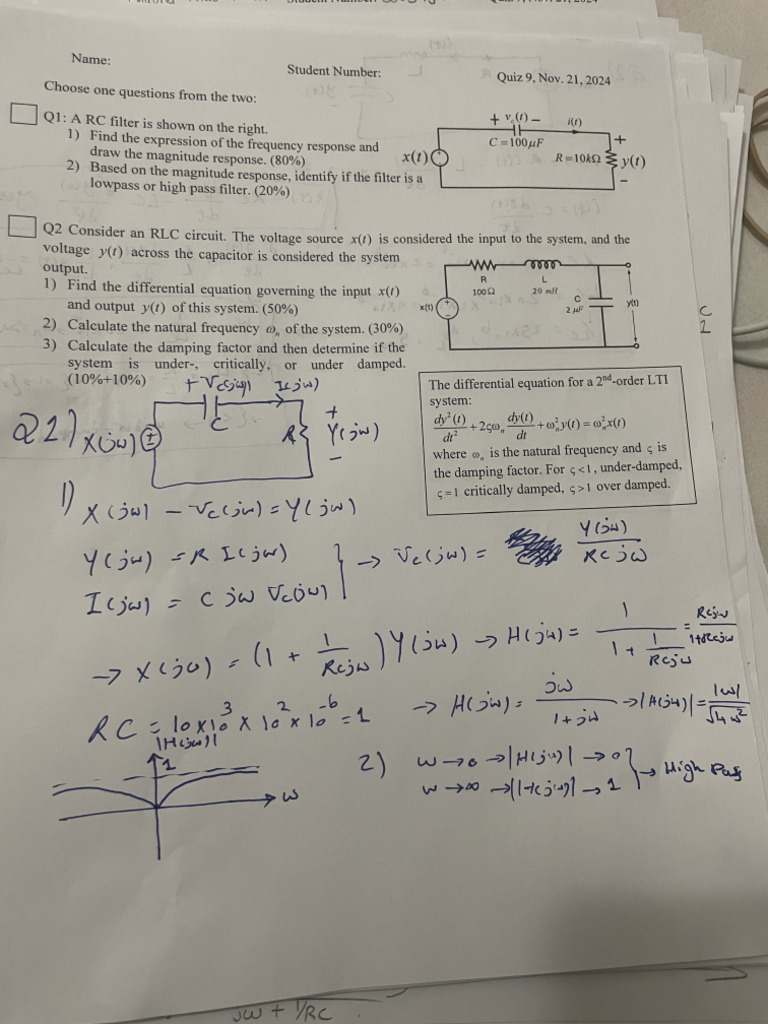 Name:
Student Number:
Quiz 9, Nov. 21, 2024
Choose one questions from the two:
Q1: A RC filter is shown on the right.
1) Find the expression of the frequency response and
draw the magnitude response. (80%)
2) Based on the magnitude response, identify if the filter is a
lowpass or high pass filter. (20%)
+ v_c(t) −
i(t)
C = 100μF
x(t)
R = 10kΩ
+
y(t)
−
Q2 Consider an RLC circuit. The voltage source x(t) is considered the input to the system, and the
voltage y(t) across the capacitor is considered the system
output.
1) Find the differential equation governing the input x(t)
and output y(t) of this system. (50%)
2) Calculate the natural frequency ω_n of the system. (30%)
3) Calculate the damping factor and then determine if the
system is under-, critically, or under damped.
(10%+10%)
R
100 Ω
L
20 mH
x(t)
+
−
C
2 μF
y(t)
C
2
The differential equation for a 2nd-order LTI
system:
dy²(t)/dt² + 2ςω_n dy(t)/dt + ω_n² y(t) = ω_n² x(t)
where ω_n is the natural frequency and ς is
the damping factor. For ς < 1, under-damped,
ς = 1 critically damped, ς > 1 over damped.
+ Vc(jω) I(jω)
Q1) X(jω) ± C R + Y(jω) −
1) X(jω) − Vc(jω) = Y(jω)
Y(jω) = R I(jω)
I(jω) = C jω Vc(jω)
} → Vc(jω) = Y(jω)/RCjω
→ X(jω) = (1 + 1/RCjω) Y(jω) → H(jω) = 1/(1 + 1/RCjω) = RCjω/1+RCjω
RC = 10×10³ × 10² × 10⁻⁶ = 1 → H(jω) = jω/1+jω → |H(jω)| = |ω|/√1+ω²
|H(jω)|
1
ω
2) ω → 0 → |H(jω)| → 0
ω → ∞ → |H(jω)| → 1
} → High Pass
jω + 1/RC